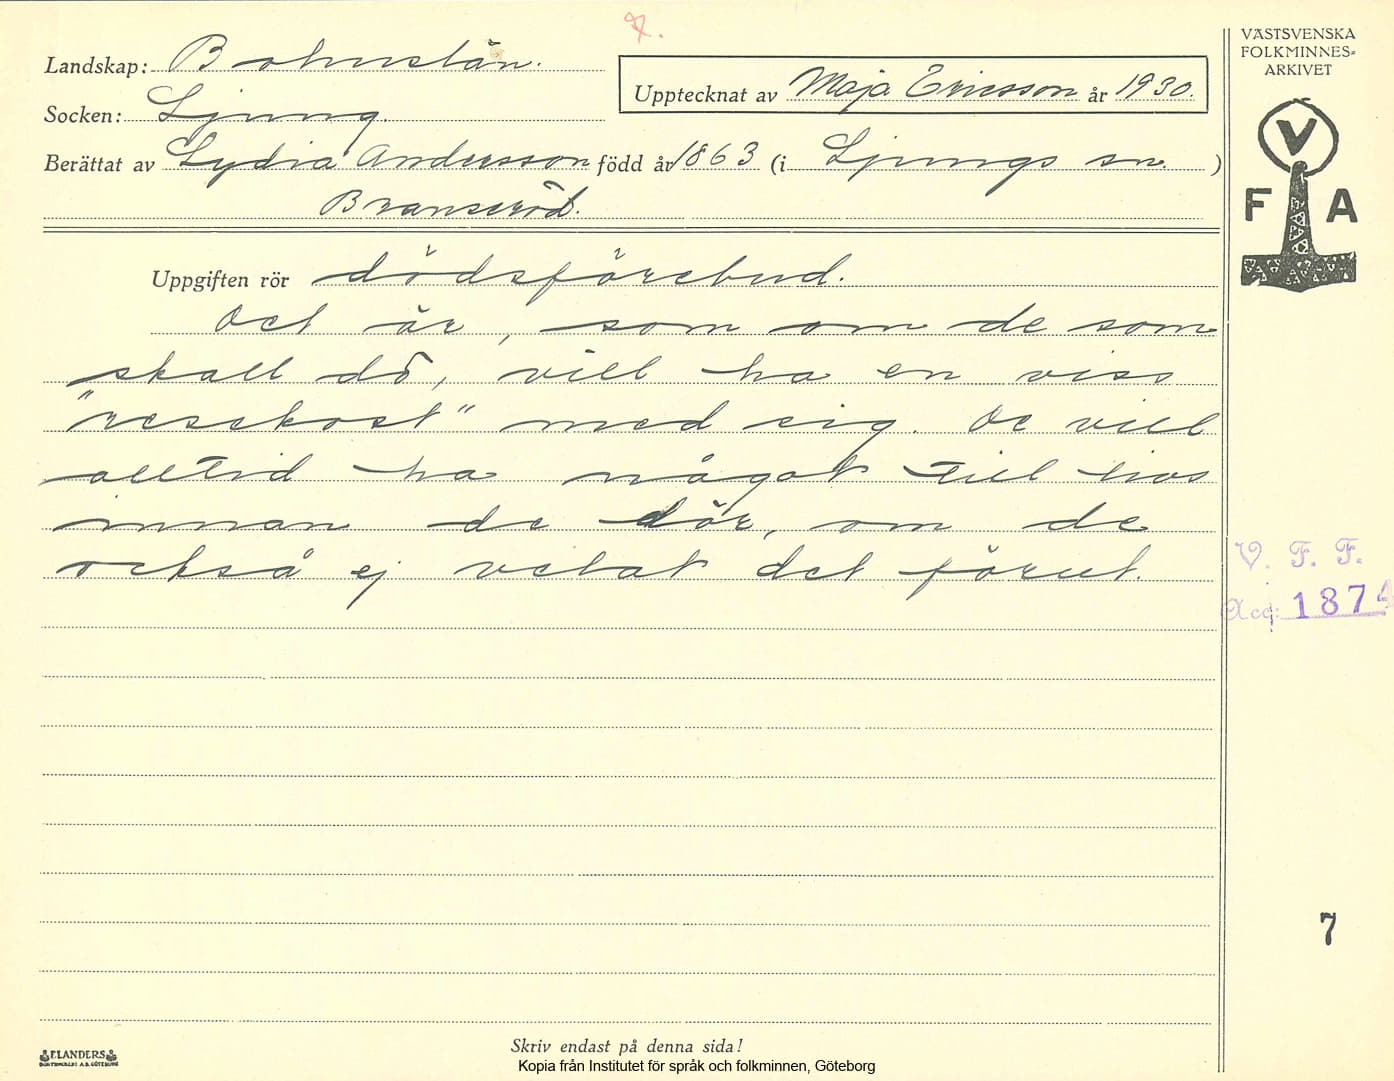 7.
Landskap: Bohuslän.
Socken: Ljung.
Upptecknat av Maja Ericsson år 1930.
Berättat av Lydia Andersson född år 1863 (i Ljungs sn. )
Bransröd.
Uppgiften rör dödsförebud.
Det är, som om de som
skall dö, vill ha en viss
"resekost" med sig. De vill
alltid ha något till livs
innan de dör, om de
också ej velat det förut.
Skriv endast på denna sida!
Kopia från Institutet för språk och folkminnen, Göteborg
ELANDERS
VÄSTSVENSKA
FOLKMINNES-
ARKIVET
V
F A
V. F. F.
Acc: 1874
7